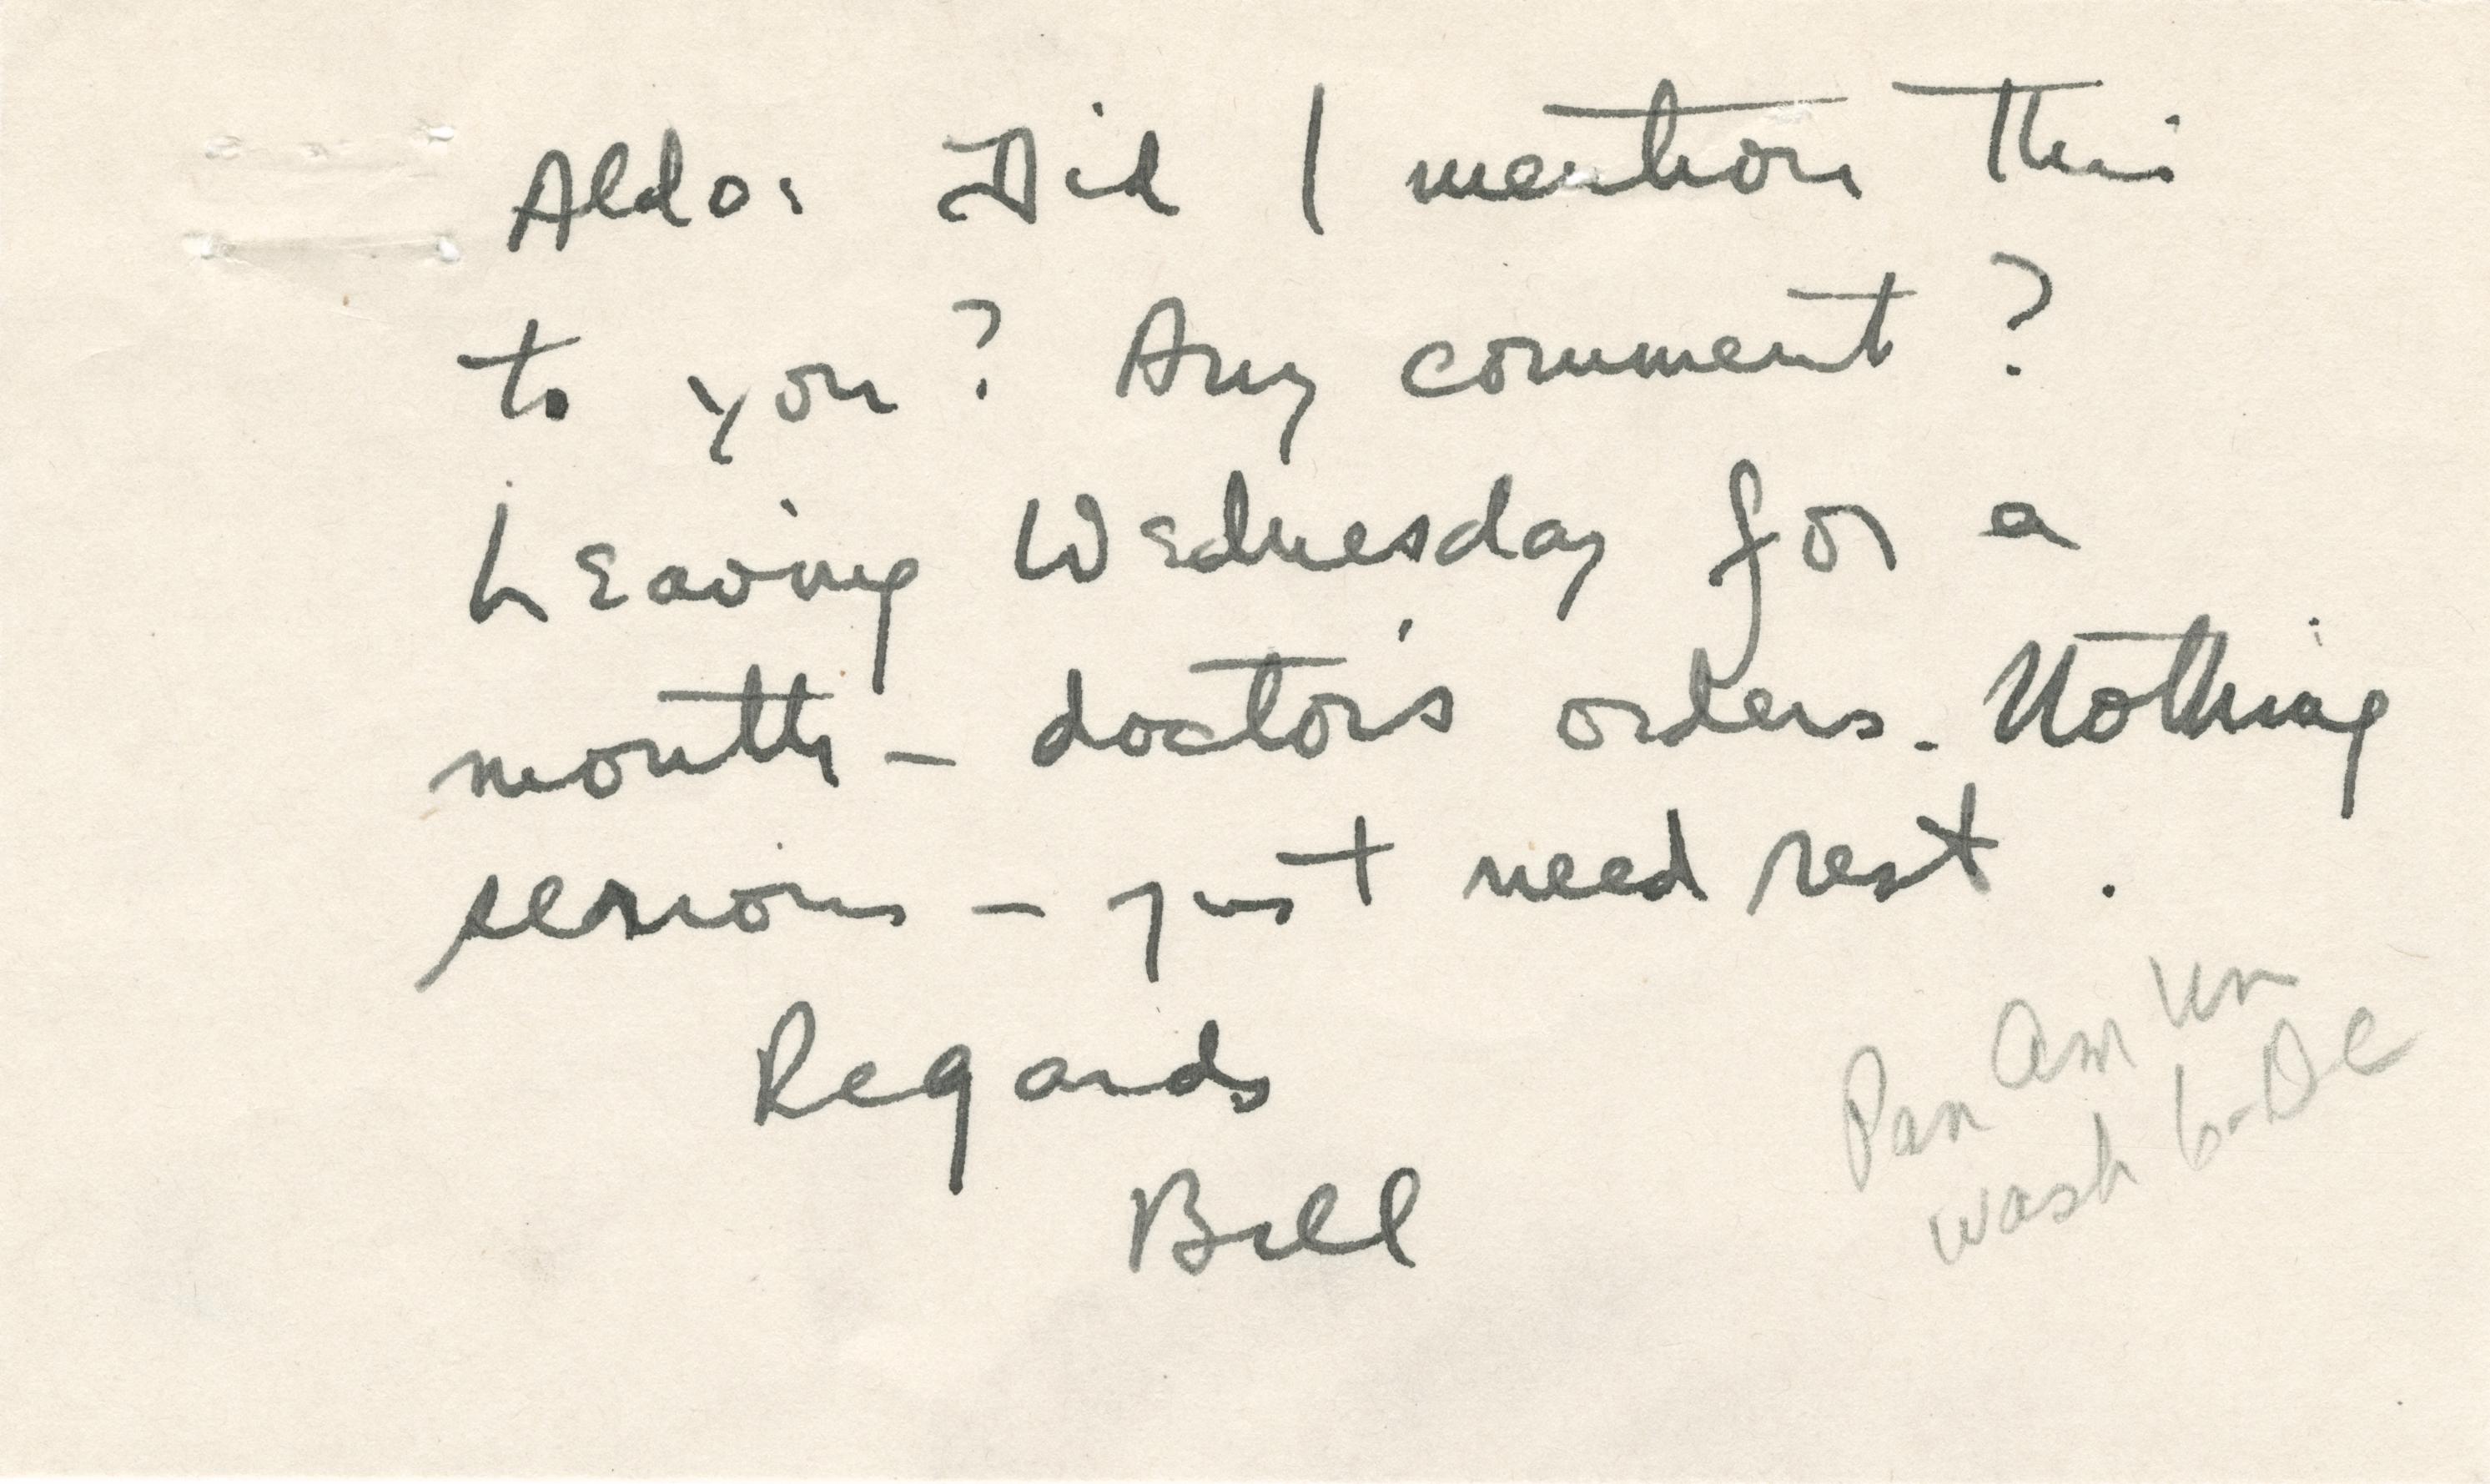 Aldo: Did I mention this
to you? Any comment?
Leaving Wednesday for a
month – doctor's orders. Nothing
serious – just need rest.
Regards
Bill
Pan Am Un
Wash 6-DC